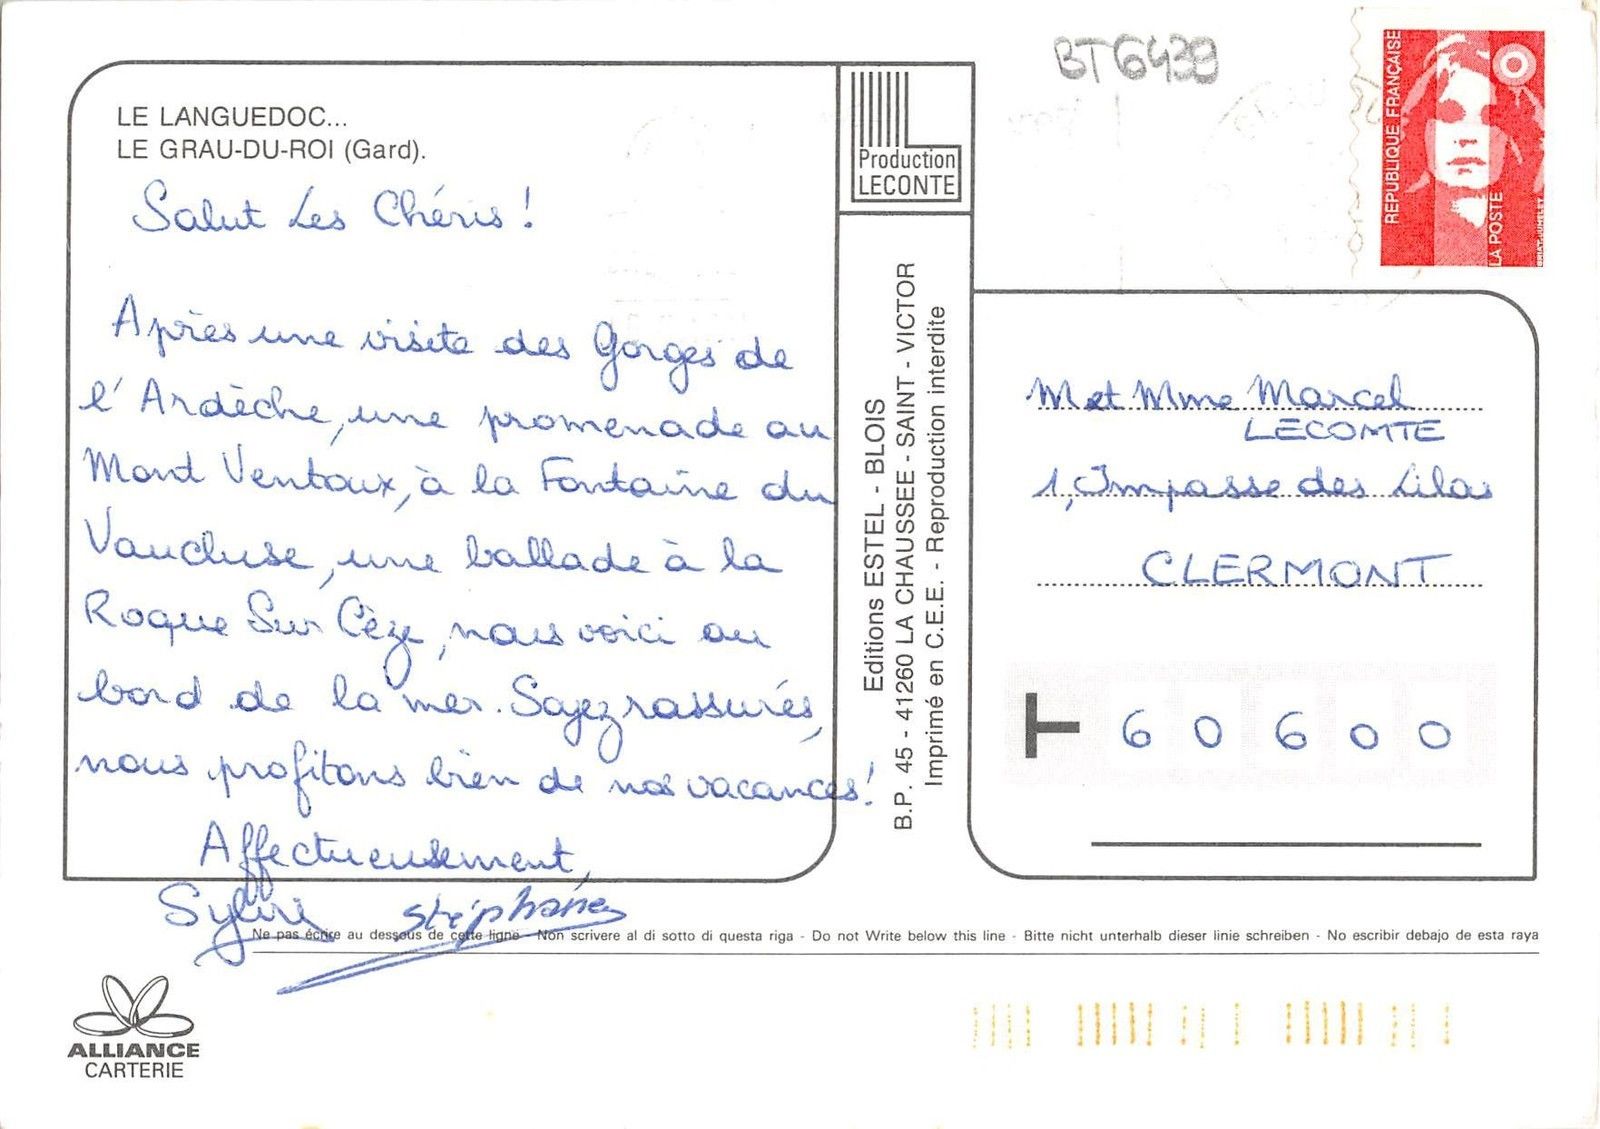 BT6439
REPUBLIQUE FRANÇAISE
LA POSTE
LE LANGUEDOC...
LE GRAU-DU-ROI (Gard).
Salut Les Chéris !
Après une visite des Gorges de
l'Ardèche, une promenade au
Mont Ventoux, à la Fontaine du
Vaucluse, une ballade à la
Roque Sur Cèze, nous voici au
bord de la mer. Soyez rassurés,
nous profitons bien de nos vacances !
Affectueusement,
Sylvie Stéphane
Production
LECONTE
Editions ESTEL - BLOIS
B.P. 45 - 41260 LA CHAUSSEE - SAINT - VICTOR
Imprimé en C.E.E. - Reproduction interdite
M et Mme Marcel
LECOMTE
1, Impasse des Lilas
CLERMONT
T 60600
Ne pas écrire au dessous de cette ligne - Non scrivere al di sotto di questa riga - Do not Write below this line - Bitte nicht unterhalb dieser linie schreiben - No escribir debajo de esta raya
ALLIANCE
CARTERIE